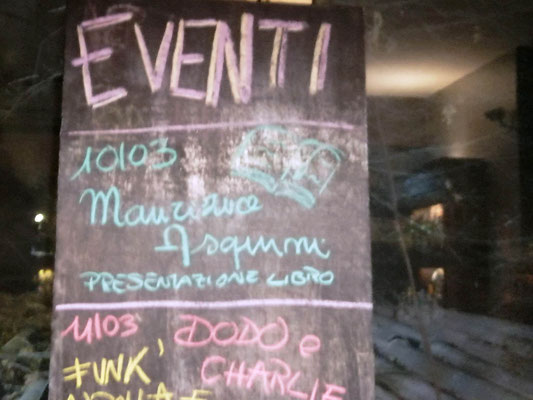 EVENTI
10/03
Maurizio
Asquini
PRESENTAZIONE LIBRO
11/03 DODO e
FUNK' CHARLIE